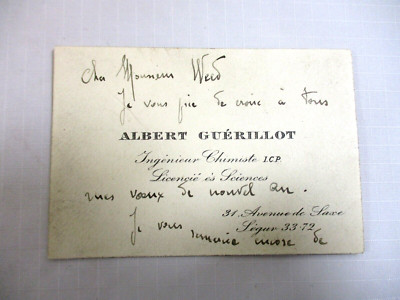 Cher Monsieur Weed
Je vous prie de croire à tous
ALBERT GUÉRILLOT
Ingénieur Chimiste I.C.P.
Licencié ès Sciences
mes vœux de nouvel an.
31 Avenue de Saxe
Je vous
Ségur 33-72
remercie encore de